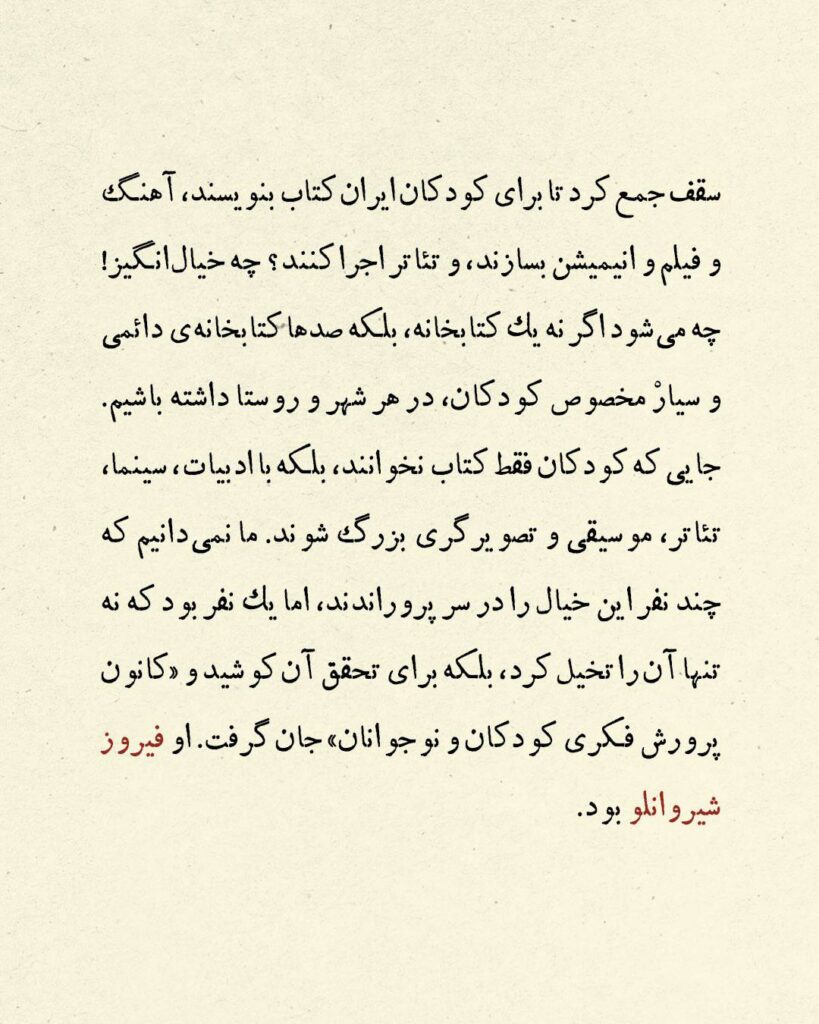 سقف جمع کرد تا برای کودکان ایران کتاب بنویسند، آهنگ
و فیلم و انیمیشن بسازند، و تئاتر اجرا کنند؟ چه خیال‌انگیز!
چه می‌شود اگر نه یك کتابخانه، بلکه صدها کتابخانه‌ی دائمی
و سیارْ مخصوص کودکان، در هر شهر و روستا داشته باشیم.
جایی که کودکان فقط کتاب نخوانند، بلکه با ادبیات، سینما،
تئاتر، موسیقی و تصویرگری بزرگ شوند. ما نمی‌دانیم که
چند نفر این خیال را در سر پروراندند، اما یك نفر بود که نه
تنها آن را تخیل کرد، بلکه برای تحقق آن کوشید و «کانون
پرورش فکری کودکان و نوجوانان» جان گرفت. او فیروز
شیروانلو بود.